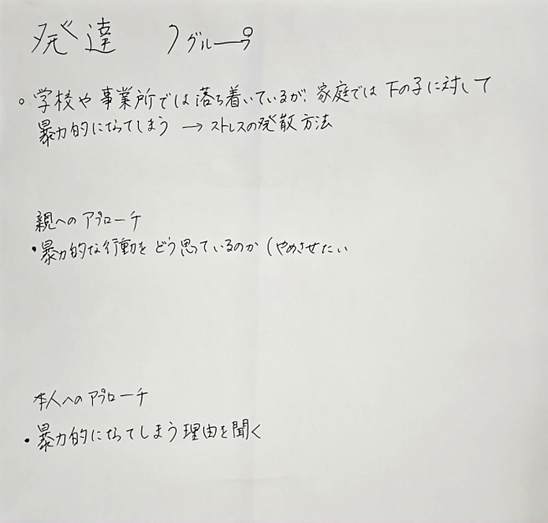 発達 フグループ
○ 学校や事業所では落ち着いているが、家庭では下の子に対して
暴力的になってしまう → ストレスの発散方法
親へのアプローチ
・暴力的な行動をどう思っているのか (やめさせたい
本人へのアプローチ
・暴力的になってしまう理由を聞く